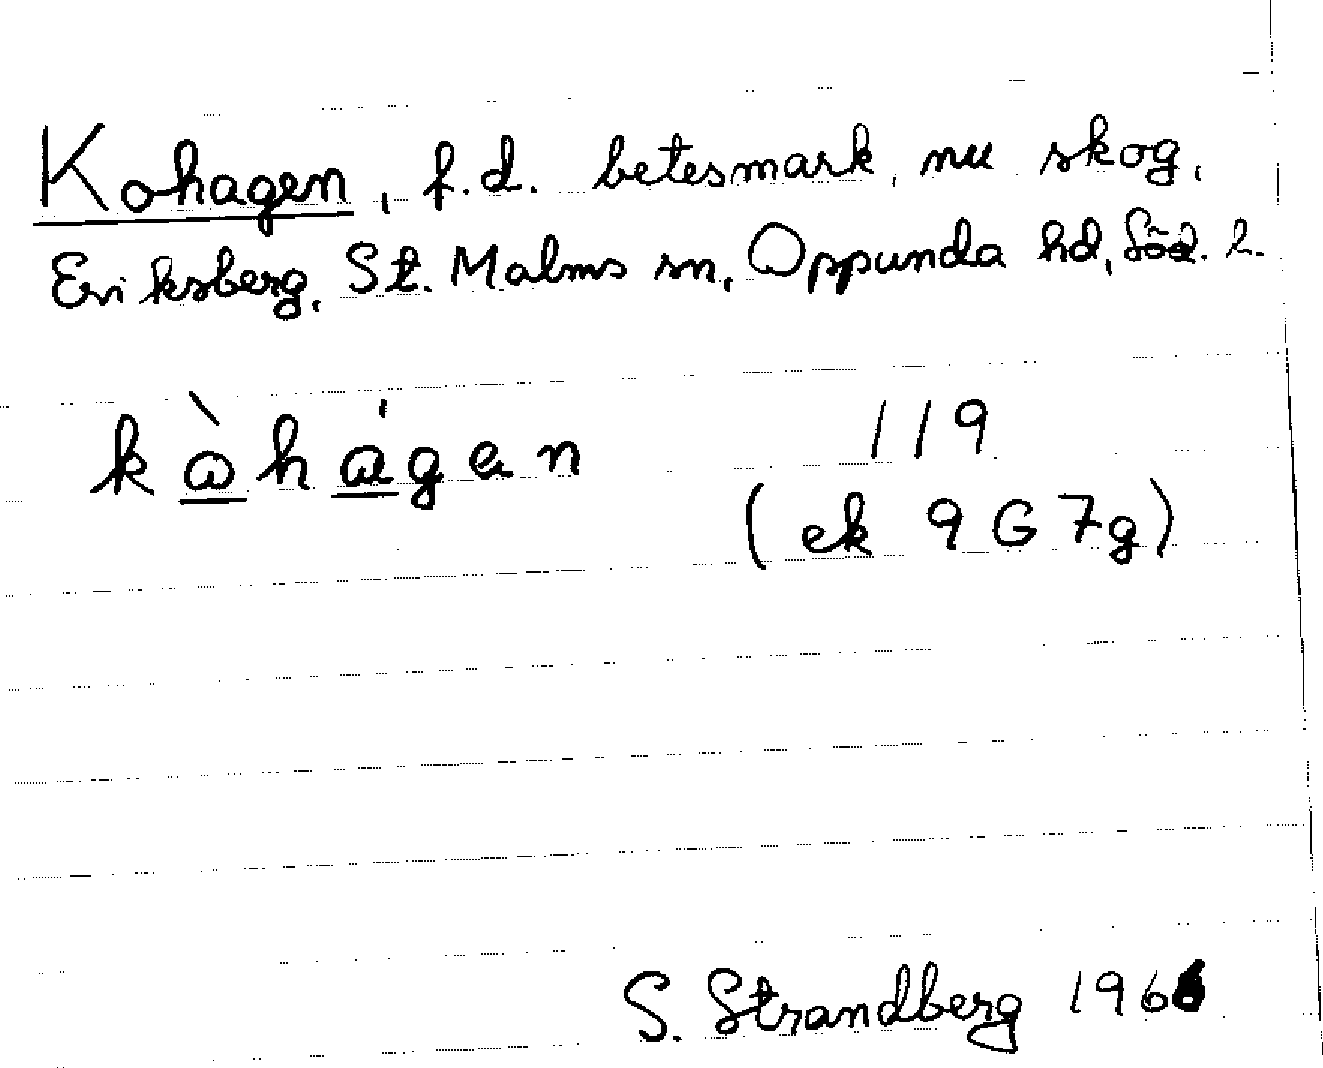 Kohagen, f.d. betesmark, nu skog,
Eriksberg, St. Malms sn, Oppunda hd, Söd. l.
kὼhάgen 119
(ek 9G7g)
S. Strandberg 1966